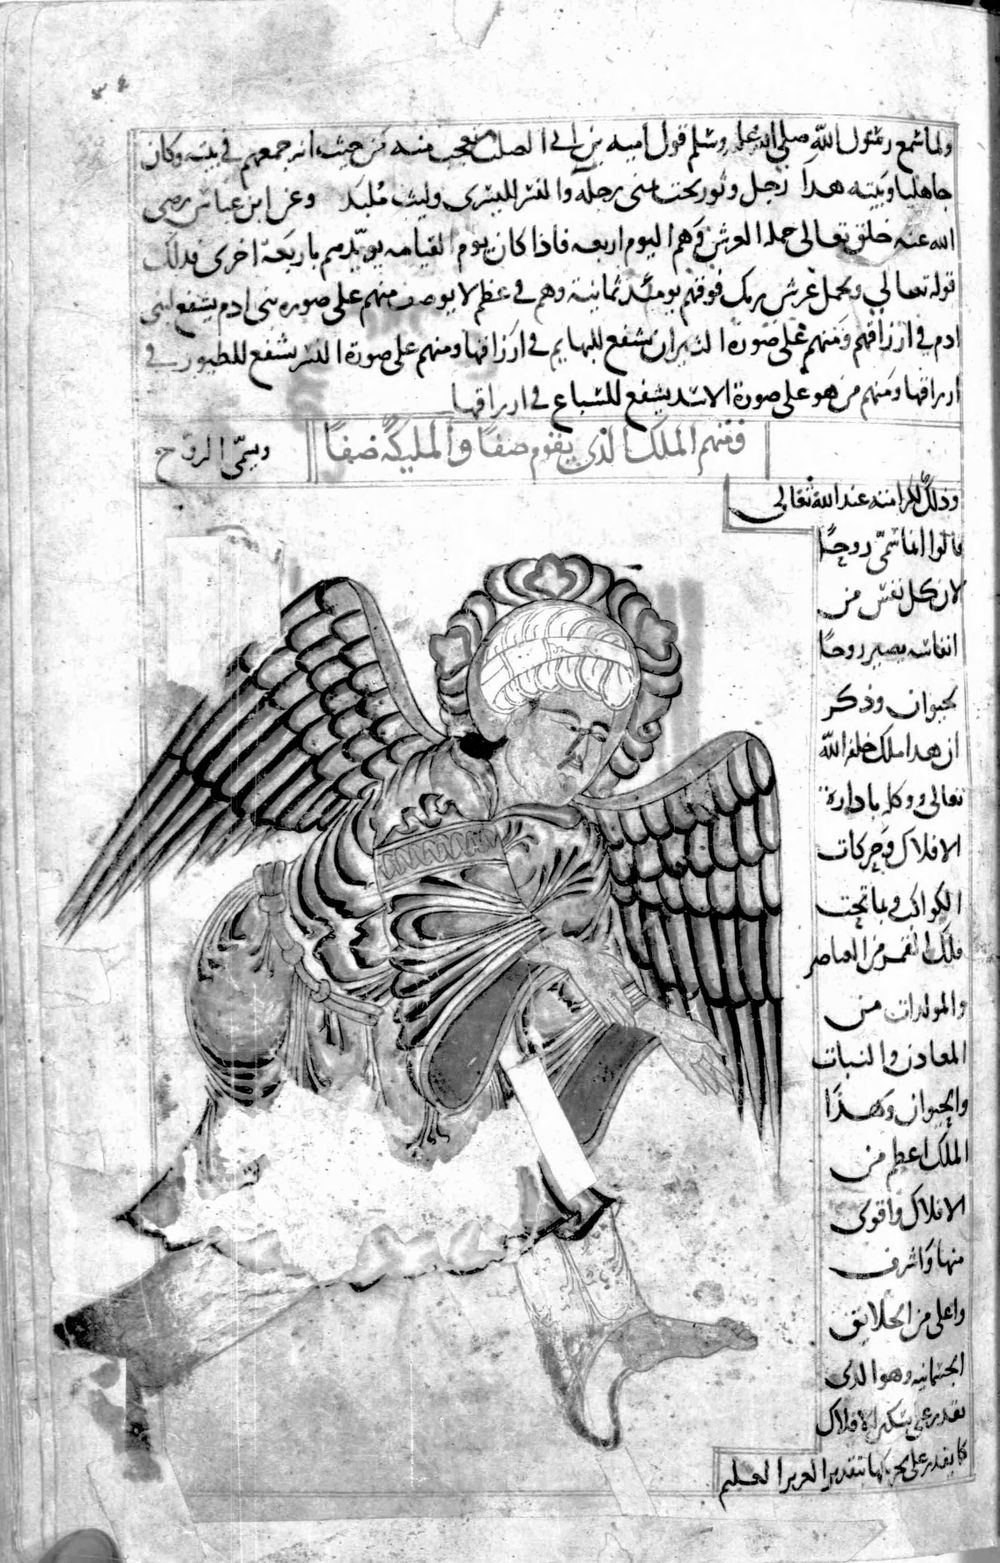 ولما سمع رسول الله صلى الله عليه وسلم قول اميه بن ابي الصلت تعجب منه من حيث انه جمعهم في بيته وكان
جاهليا وبيته هذا رجل وثور تحت يمنى رجله والنسر لليسرى وليث ملبد وعن ابن عباس رضى
الله عنه خلق تعالى حمله العرش وهم اليوم اربعه فاذا كان يوم القيامه يويدهم باربعة اخرى فذلك
قوله تعالي ويحمل عرش ربك فوقهم يومئذ ثمانية وهم في عظم لا يوصف منهم على صوره بنى ادم يشفع لبنى
ادم في ارزاقهم ومنهم على صورة الثيران يشفع للبهايم في ارزاقها ومنهم على صورة النسر يشفع للطيور في
ارزاقها ومنهم من هو على صورة الاسد يشفع للسباع في ارزاقها
فمنهم الملك الذي يقوم صفا والمليكة صفا ويسمى الروح
وذلك لكرامته عند الله تعالى
قالوا انما سمي روحا
لان كل نفس من
انفاسه يصير روحا
لحيوان وذكر
ان هدا ملك خلقه الله
تعالى ووكله بادارة
الافلاك وحركات
الكواكب وما تحت
فلك القمر من العناصر
والمولدات من
المعادن والنبات
والحيوان وهذا
الملك اعظم من
الافلاك واقوى
منها واشرف
واعلى من الخلايق
الجسمانيه وهو الدى
يقدر على تسكين الافلاك
كما يقدر على تحريكها بتقدير العزيز العليم